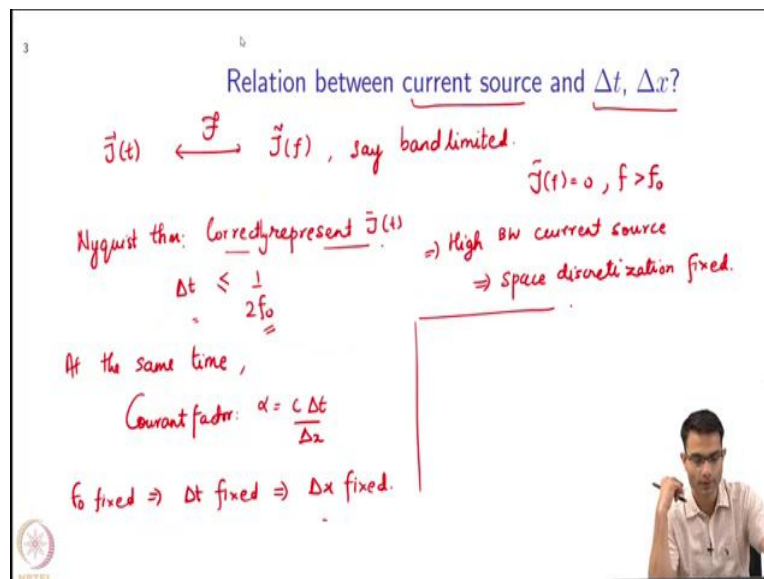 3
Relation between current source and Δt, Δx?
J⃗(t) ⟷ℱ J̃(f), say bandlimited.
J̃(f) = 0, f > f₀
Nyquist thm: Correctly represent J̄(t)
Δt ≤ 1/2f₀
⇒ High BW current source
⇒ space discretization fixed.
At the same time,
Courant factor: α = cΔt/Δx
f₀ fixed ⇒ Δt fixed ⇒ Δx fixed.
NPTEL